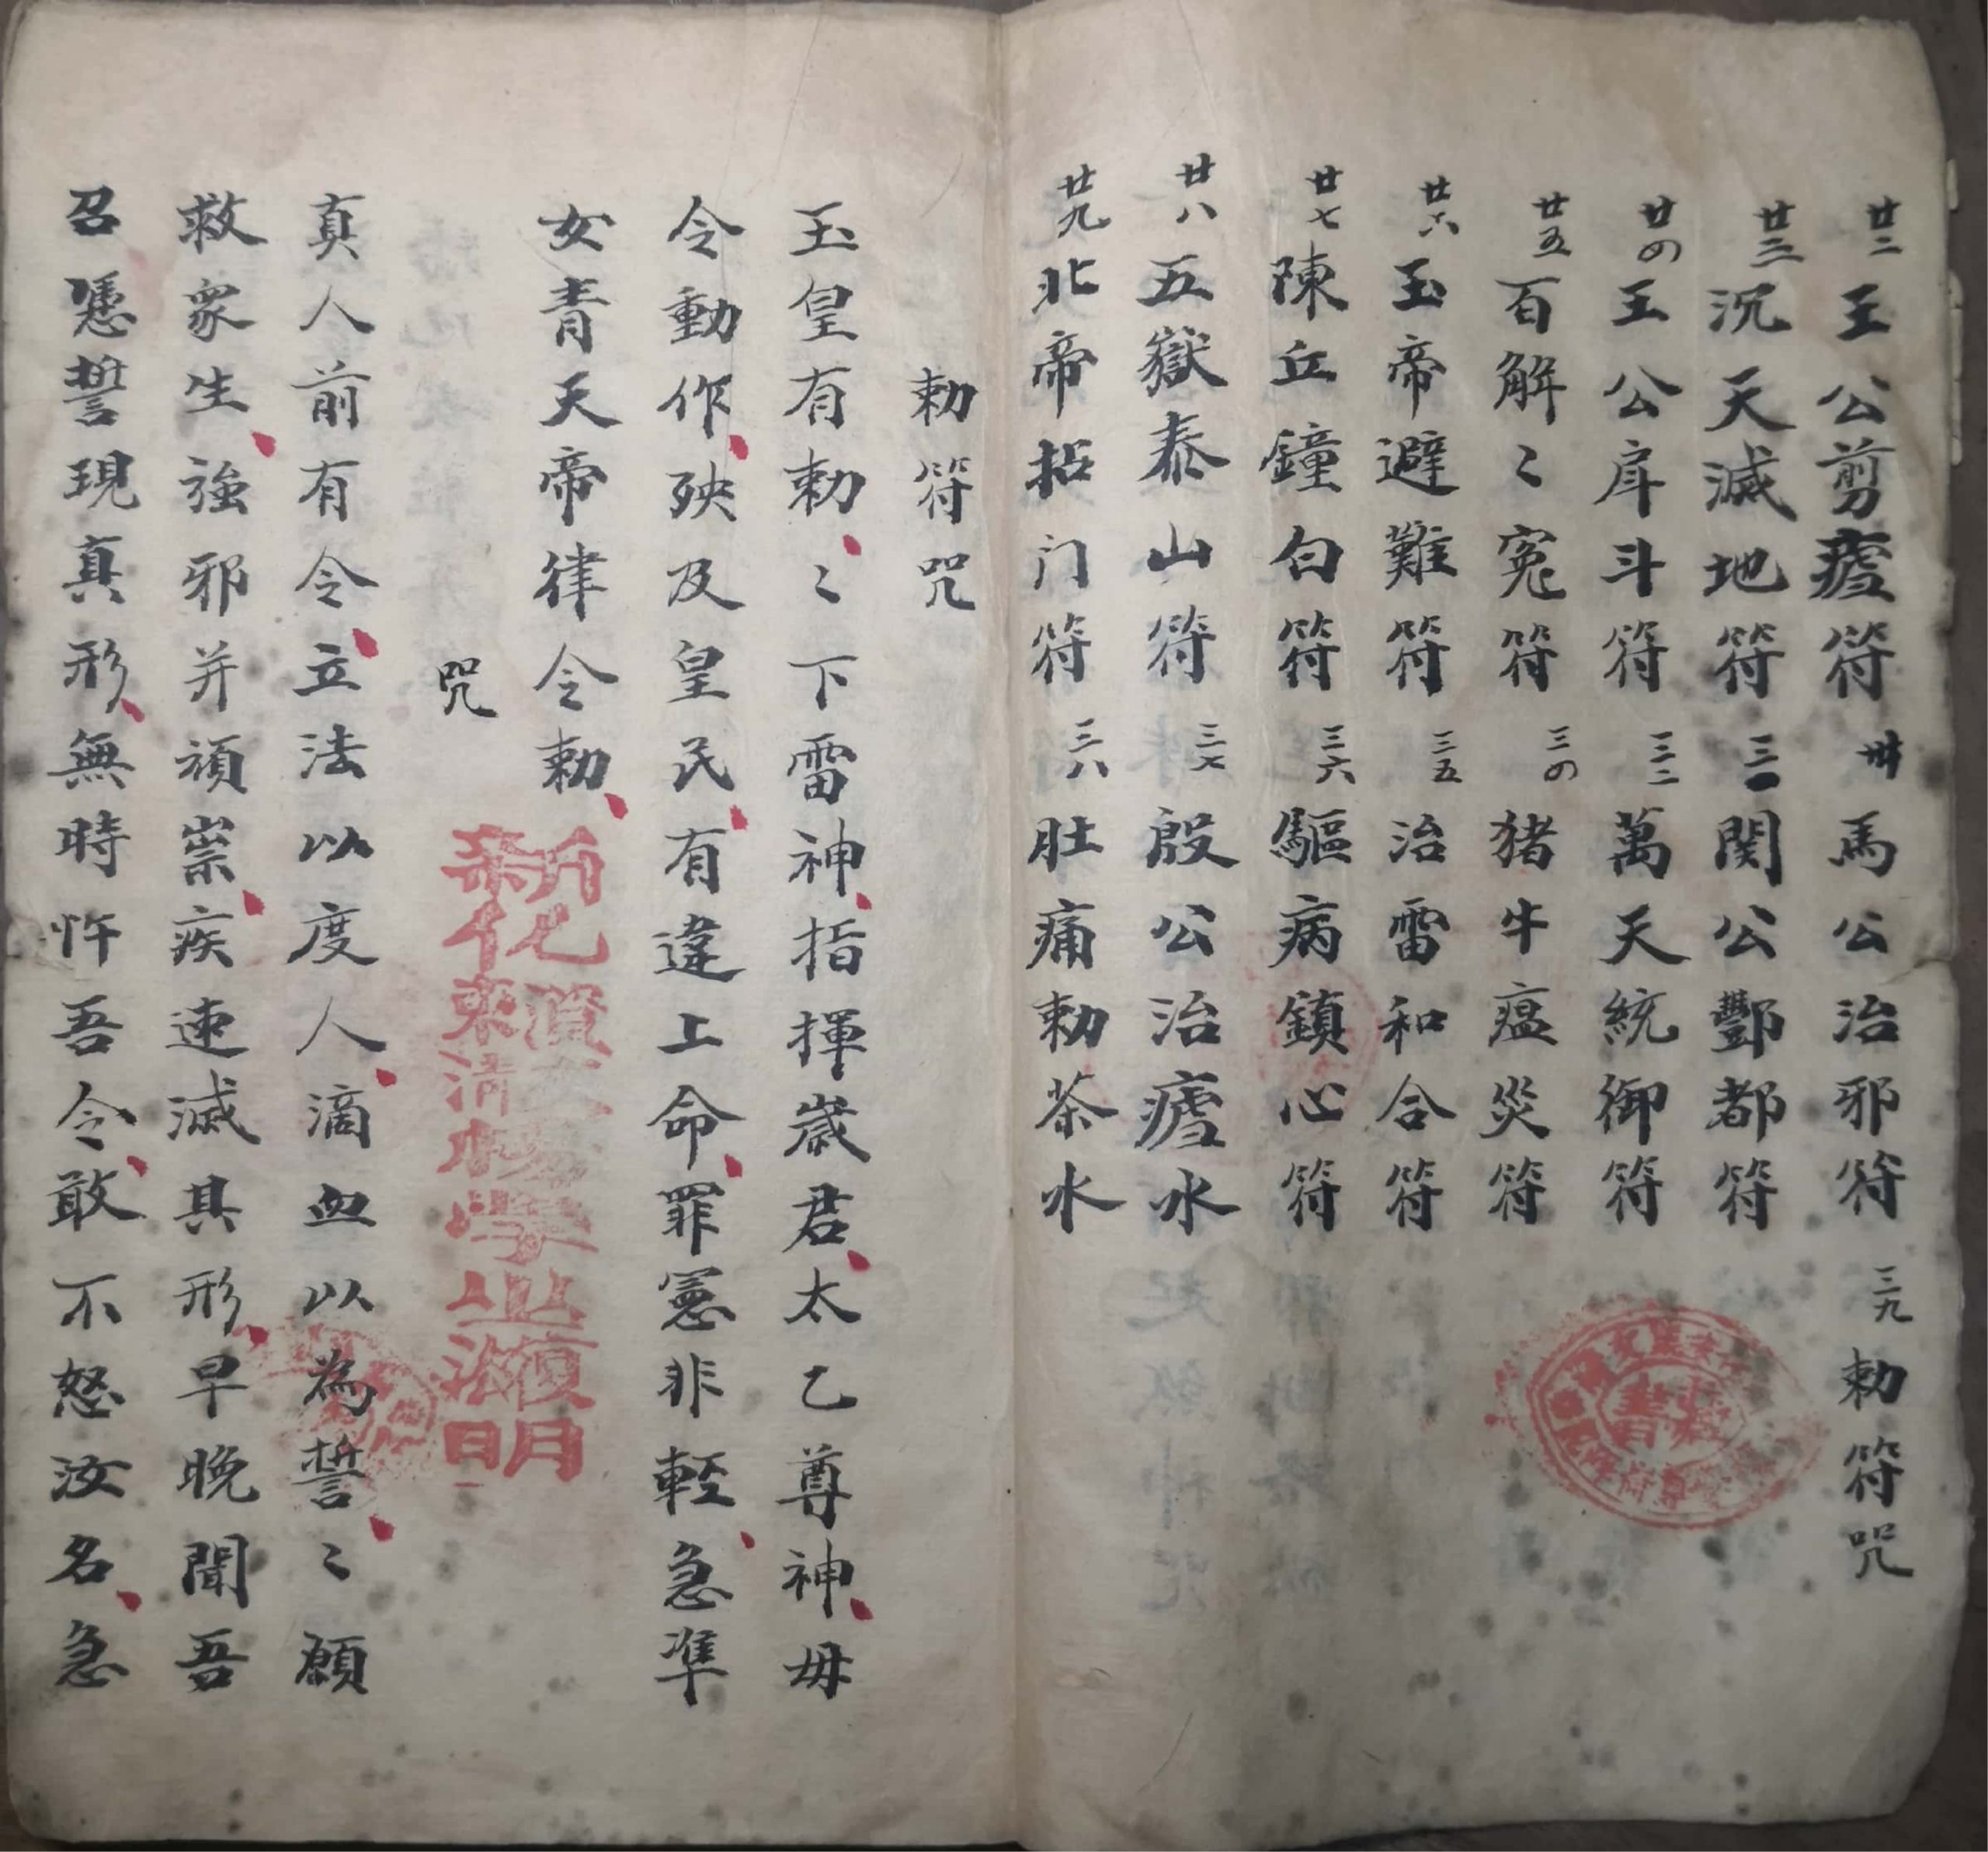 廿二 王公剪瘧符 卅 馬公治邪符 三九 勅符咒
廿三 沉天滅地符 三一 関公酆都符
廿四 王公戽斗符 三二 萬天統御符
廿五 百解〻寃符 三四 猪牛瘟災符
廿六 玉帝避難符 三五 治雷和合符
廿七 陳丘鐘白符 三六 驅病鎮心符
廿八 五嶽泰山符 三七 殷公治瘧水
廿九 北帝招门符 三八 肚痛勅茶水
勅符咒
玉皇有勅〻下雷神指揮歲君太乙尊神毋
令動作殃及皇民有違上命罪憲非輕急準
女青天帝律令勅
咒
真人前有令立法以度人滴血以為誓〻願
救衆生強邪并頑祟疾速滅其形早晚聞吾
召憑誓現真形無時忤吾令敢不怒汝名急